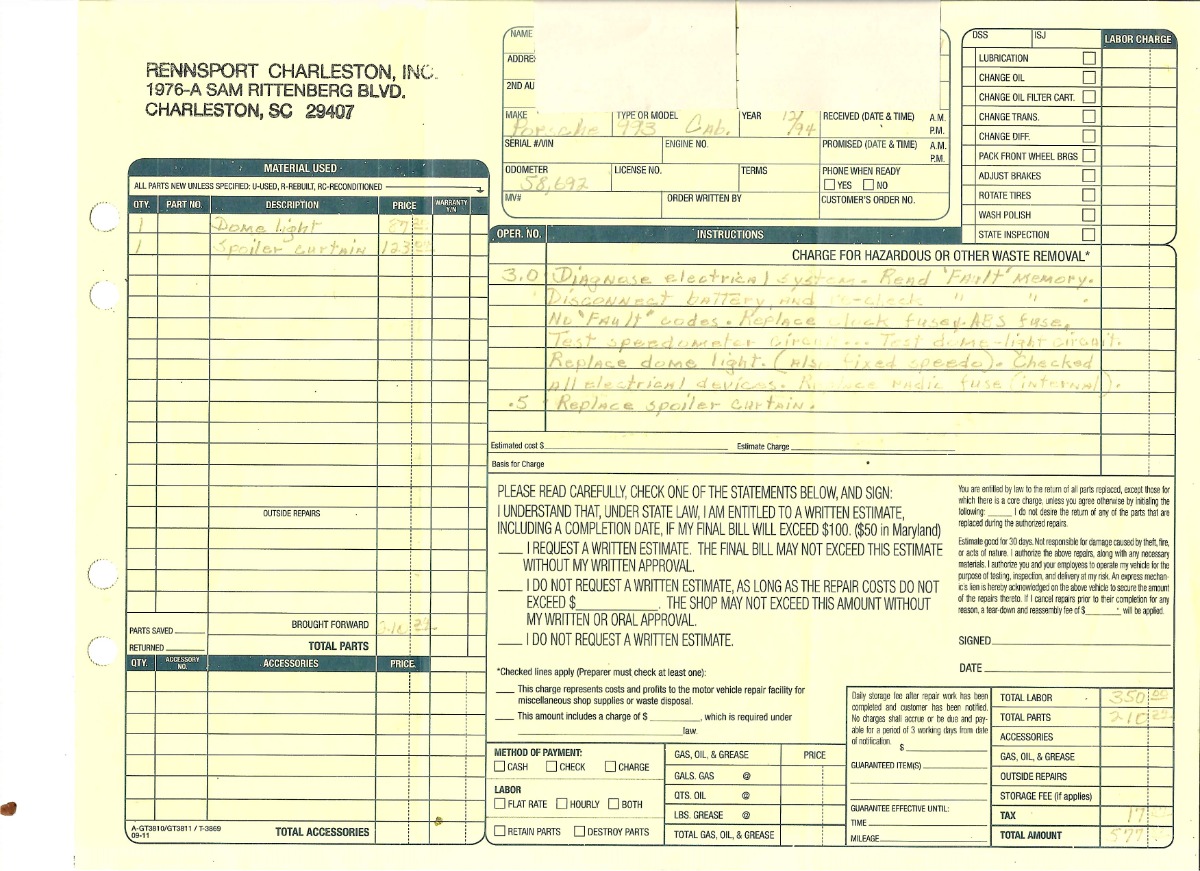 RENNSPORT CHARLESTON, INC.
1976-A SAM RITTENBERG BLVD.
CHARLESTON, SC 29407
NAME
ADDRE
2ND AU
MAKE TYPE OR MODEL YEAR RECEIVED (DATE & TIME) A.M. P.M.
Porsche 993 Cab. 12/94
SERIAL #/VIN ENGINE NO. PROMISED (DATE & TIME) A.M. P.M.
ODOMETER LICENSE NO. TERMS PHONE WHEN READY
58,692 YES NO
MV# ORDER WRITTEN BY CUSTOMER'S ORDER NO.
DSS ISJ LABOR CHARGE
LUBRICATION
CHANGE OIL
CHANGE OIL FILTER CART.
CHANGE TRANS.
CHANGE DIFF.
PACK FRONT WHEEL BRGS
ADJUST BRAKES
ROTATE TIRES
WASH POLISH
STATE INSPECTION
MATERIAL USED
ALL PARTS NEW UNLESS SPECIFIED: U-USED, R-REBUILT, RC-RECONDITIONED
QTY. PART NO. DESCRIPTION PRICE WARRANTY Y/N
1 Dome light 87
1 Spoiler curtain 123
OUTSIDE REPAIRS
PARTS SAVED
BROUGHT FORWARD 210
RETURNED TOTAL PARTS
QTY. ACCESSORY NO. ACCESSORIES PRICE
A-GT3810/GT3811 / T-3869
09-11
TOTAL ACCESSORIES
OPER. NO. INSTRUCTIONS
CHARGE FOR HAZARDOUS OR OTHER WASTE REMOVAL*
3.0 Diagnose electrical system. Read "Fault" Memory.
Disconnect battery, and re-check " " .
No "Fault" codes. Replace clock fuse, ABS fuse,
Test speedometer circuit... Test dome-light circuit.
Replace dome light. (Also fixed speedo). Checked
all electrical devices. Replace radio fuse (internal).
.5 Replace spoiler curtain.
Estimated cost $ Estimate Charge
Basis for Charge
PLEASE READ CAREFULLY, CHECK ONE OF THE STATEMENTS BELOW, AND SIGN:
I UNDERSTAND THAT, UNDER STATE LAW, I AM ENTITLED TO A WRITTEN ESTIMATE,
INCLUDING A COMPLETION DATE, IF MY FINAL BILL WILL EXCEED $100. ($50 in Maryland)
I REQUEST A WRITTEN ESTIMATE. THE FINAL BILL MAY NOT EXCEED THIS ESTIMATE
WITHOUT MY WRITTEN APPROVAL.
I DO NOT REQUEST A WRITTEN ESTIMATE, AS LONG AS THE REPAIR COSTS DO NOT
EXCEED $ . THE SHOP MAY NOT EXCEED THIS AMOUNT WITHOUT
MY WRITTEN OR ORAL APPROVAL.
I DO NOT REQUEST A WRITTEN ESTIMATE.
You are entitled by law to the return of all parts replaced, except those for
which there is a core charge, unless you agree otherwise by initialing the
following: I do not desire the return of any of the parts that are
replaced during the authorized repairs.
Estimate good for 30 days. Not responsible for damage caused by theft, fire,
or acts of nature. I authorize the above repairs, along with any necessary
materials. I authorize you and your employees to operate my vehicle for the
purpose of testing, inspection, and delivery at my risk. An express mechan-
ic's lien is hereby acknowledged on the above vehicle to secure the amount
of the repairs thereto. If I cancel repairs prior to their completion for any
reason, a tear-down and reassembly fee of $ will be applied.
SIGNED
DATE
*Checked lines apply (Preparer must check at least one):
This charge represents costs and profits to the motor vehicle repair facility for
miscellaneous shop supplies or waste disposal.
This amount includes a charge of $ , which is required under
law.
METHOD OF PAYMENT:
CASH CHECK CHARGE
LABOR
FLAT RATE HOURLY BOTH
RETAIN PARTS DESTROY PARTS
GAS, OIL, & GREASE PRICE
GALS. GAS @
QTS. OIL @
LBS. GREASE @
TOTAL GAS, OIL, & GREASE
Daily storage fee after repair work has been
completed and customer has been notified.
No charges shall accrue or be due and pay-
able for a period of 3 working days from date
of notification. $
GUARANTEED ITEM(S)
GUARANTEE EFFECTIVE UNTIL:
TIME
MILEAGE
TOTAL LABOR 350 00
TOTAL PARTS 210
ACCESSORIES
GAS, OIL, & GREASE
OUTSIDE REPAIRS
STORAGE FEE (if applies)
TAX 17
TOTAL AMOUNT 577